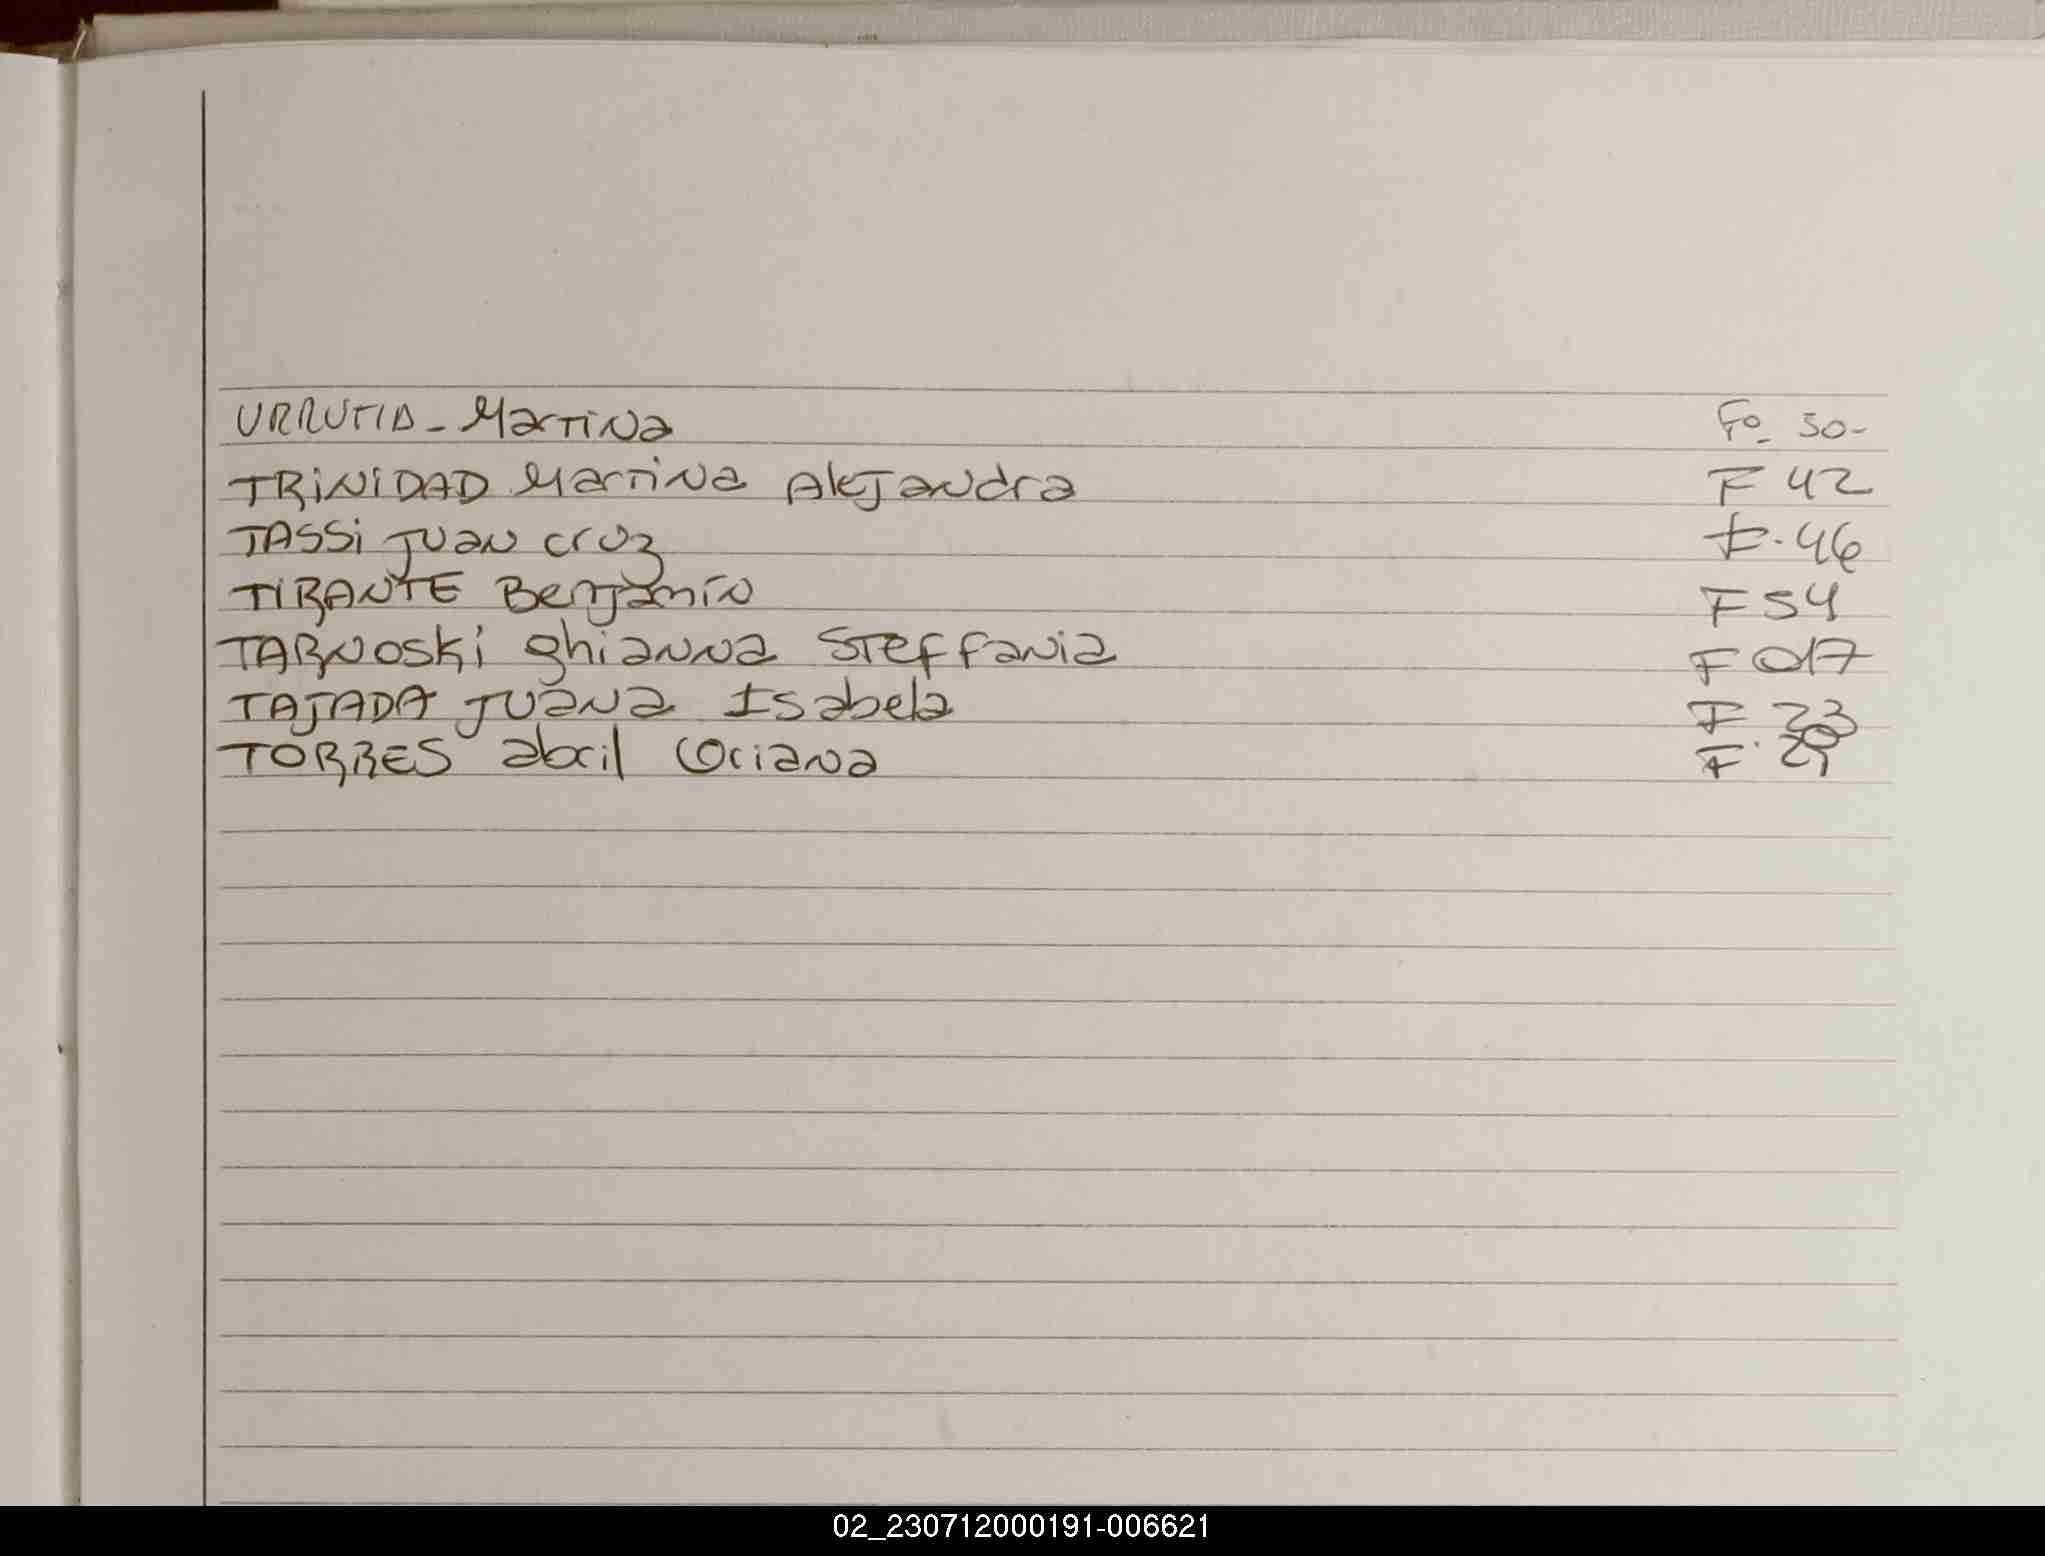 URRUTIA - Martina Fo. 50-
TRiNiDAD Martina Alejandra F 42
TASSi Juan cruz F. 46
TIRANTE Benjamín F 54
TARNOSKi ghianna Steffania F 017
TAJADA Juana Isabela F 23
TORRES abril Oriana F. 29
02_230712000191-006621